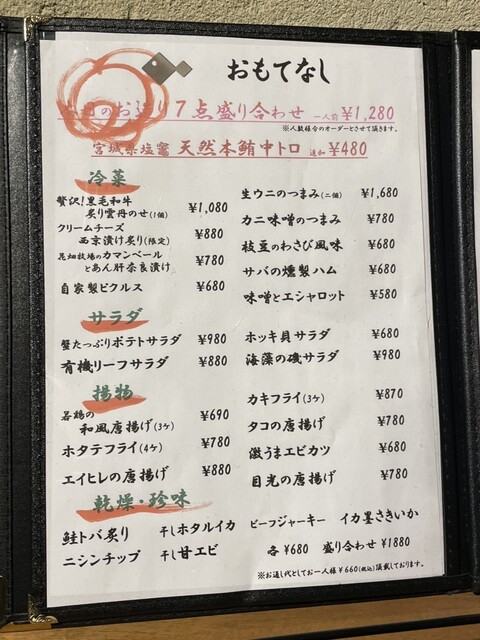 おもてなし
本日のお造り7点盛り合わせ 一人前 ¥1,280
※人数様分のオーダーとさせて頂きます。
宮城県塩竈 天然本鮪中トロ 追加 ¥480
冷菜
贅沢!黒毛和牛
炙り雲丹のせ(1個) ¥1,080
クリームチーズ
西京漬け炙り(限定) ¥880
花畑牧場のカマンベール
とあん肝奈良漬け ¥780
自家製ピクルス ¥680
生ウニのつまみ(二個) ¥1,680
カニ味噌のつまみ ¥780
枝豆のわさび風味 ¥680
サバの燻製ハム ¥680
味噌とエシャロット ¥580
サラダ
蟹たっぷりポテトサラダ ¥980
有機リーフサラダ ¥880
ホッキ貝サラダ ¥680
海藻の磯サラダ ¥980
揚物
若鶏の
和風唐揚げ(3ケ) ¥690
ホタテフライ(4ケ) ¥780
エイヒレの唐揚げ ¥880
カキフライ(3ケ) ¥870
タコの唐揚げ ¥780
激うまエビカツ ¥680
目光の唐揚げ ¥780
乾燥・珍味
鮭トバ炙り 干しホタルイカ ビーフジャーキー イカ墨さきいか
ニシンチップ 干し甘エビ 各 ¥680 盛り合わせ ¥1880
※お通し代としてお一人様¥660(税込)頂戴しております。